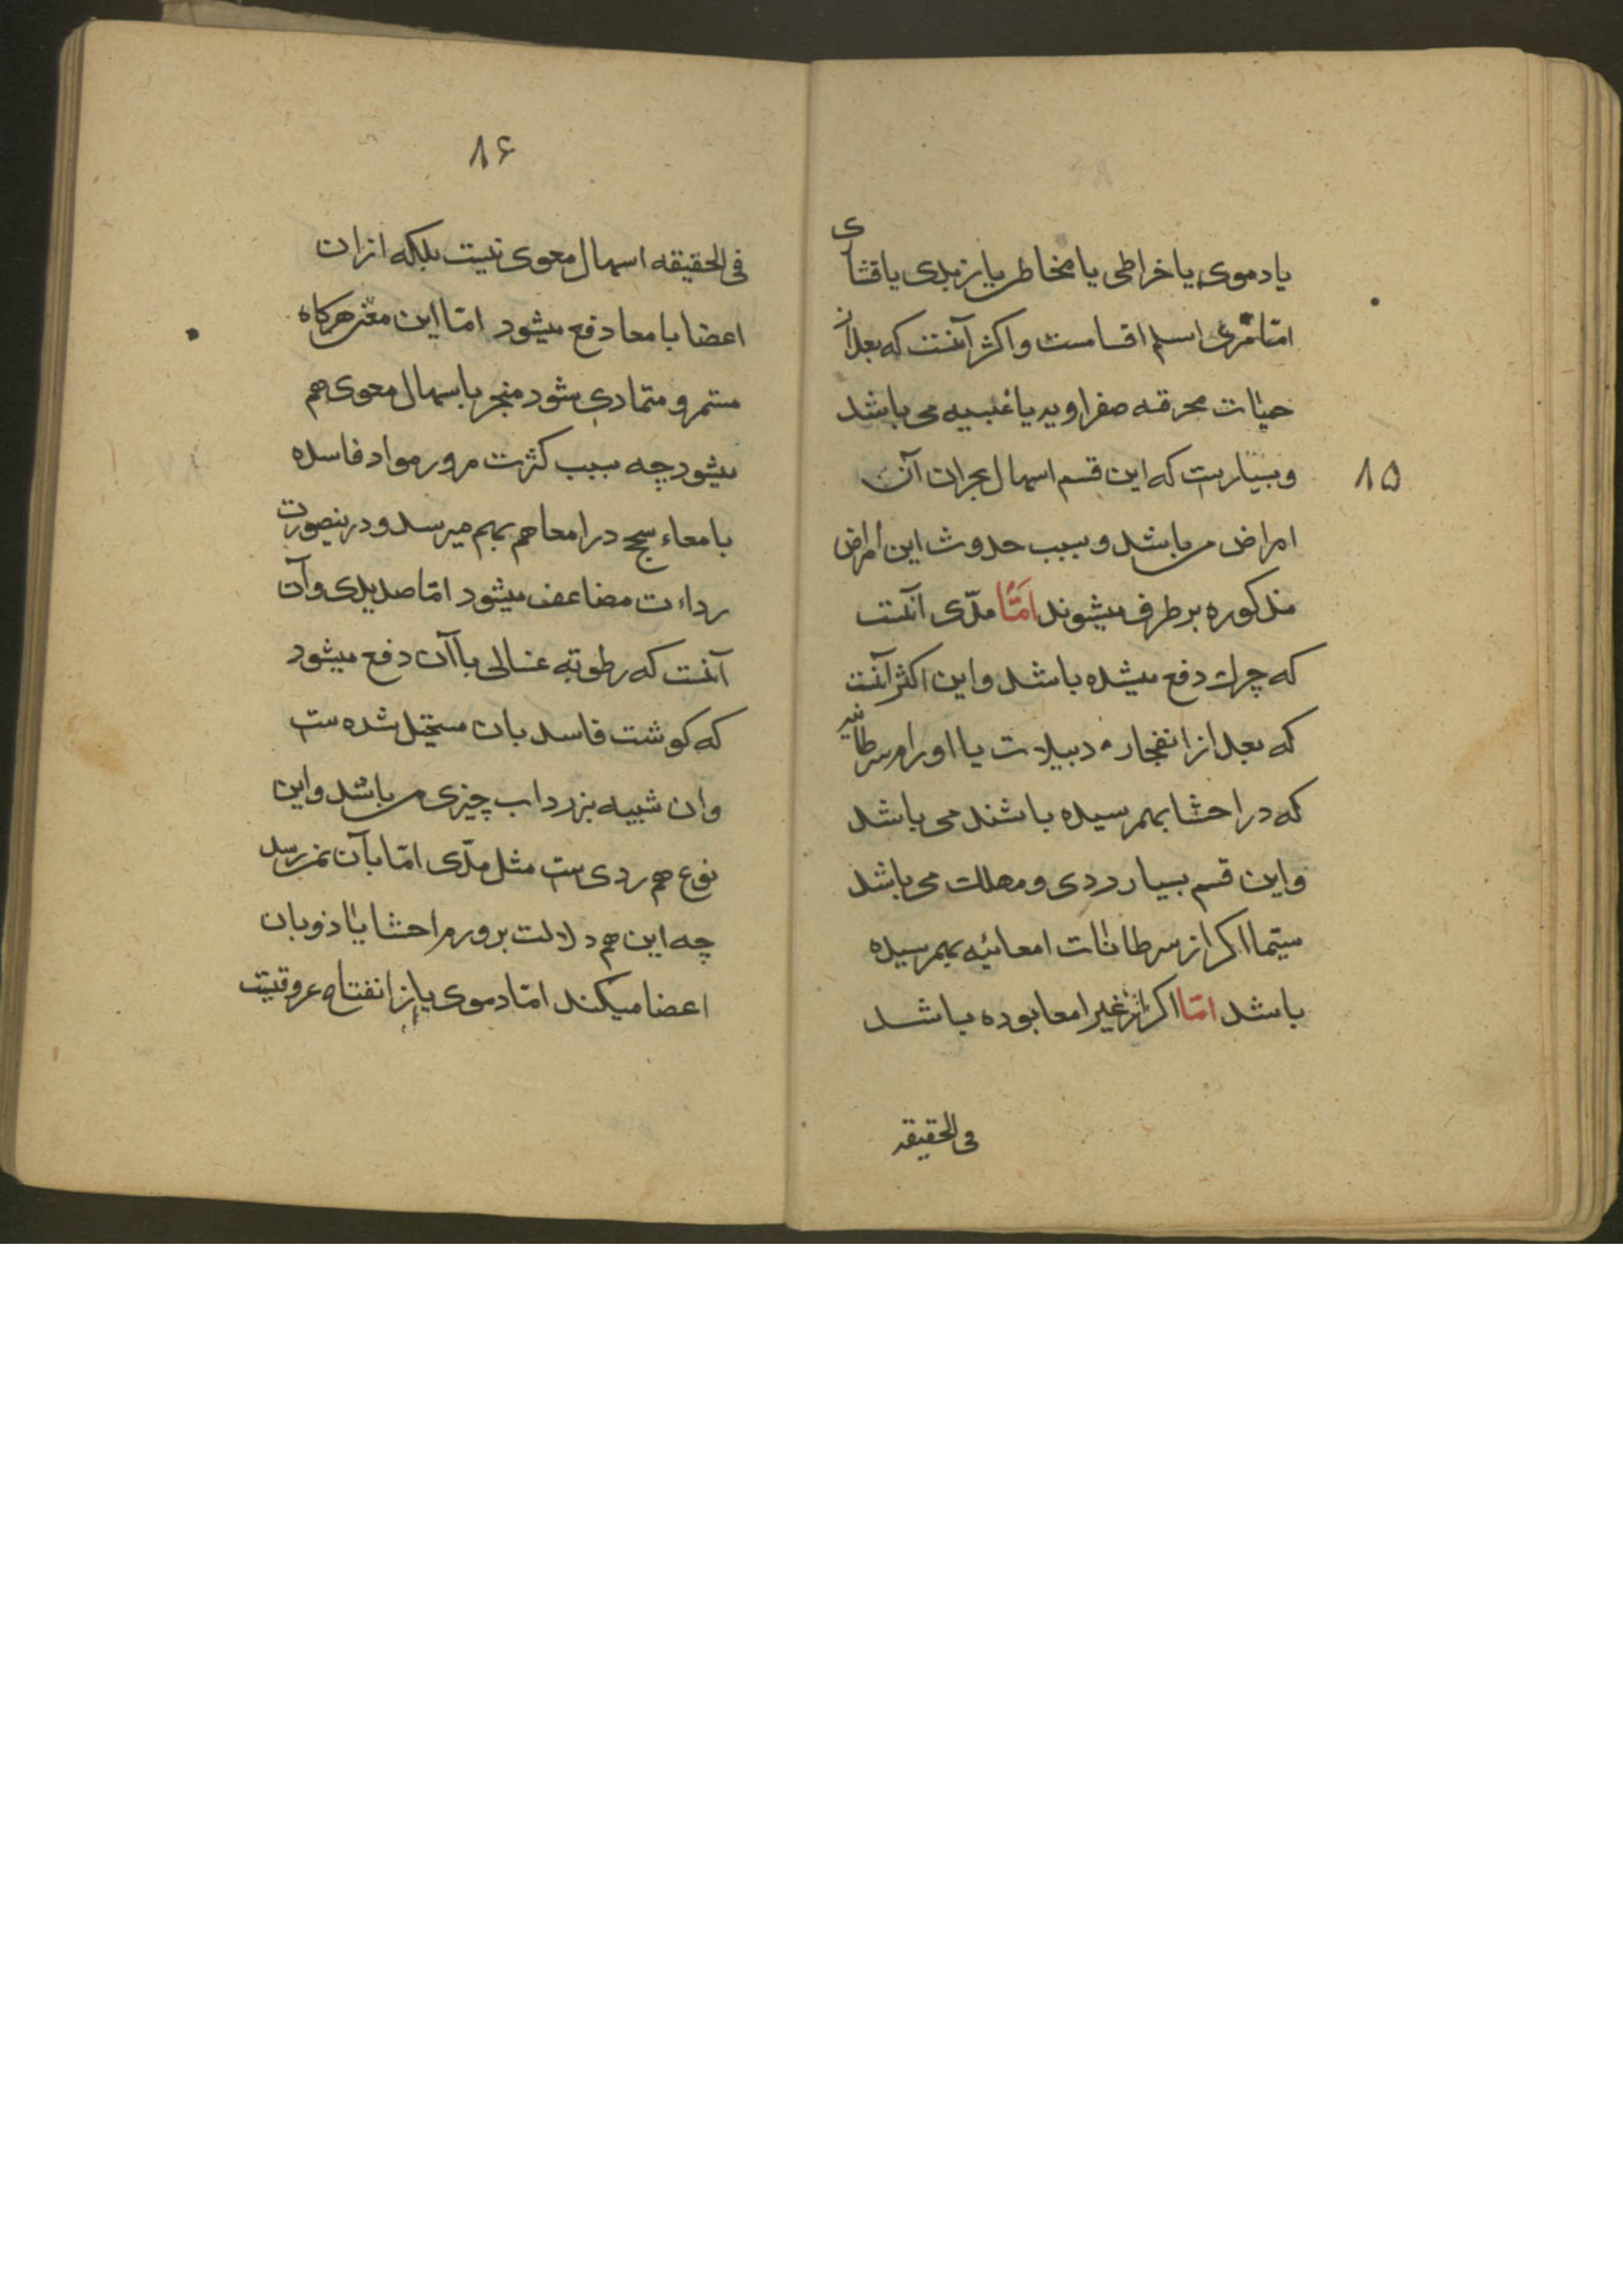 یا دموی یا خراطی یا مخاطی یا زبدی یا قشاری
امّا مری اسلم اقسامست و اکثر آنست که بعد از
حمیّات محرقه صفراویه یا غبیه می باشد
و بسیارست که این قسم اسهال بحران آن
۸۵
امراض می باشد و بسبب حدوث این امراض
مذکوره بر طرف میشوند امّا مدّی آنست
که چرک دفع میشده باشد و این اکثر آنست
که بعد از انفجار دبیلات یا اورام سرطانیه
که در احشا بهمرسیده باشند می باشد
و این قسم بسیار ردی و مهلک می باشد
سیّما اکر از سرطانات امعائیه بهمرسیده
باشد امّا اکر از غیر امعا بوده باشد
فی الحقیقه
۸۶
فی الحقیقه اسهال معوی نیست بلکه از ان
اعضا بامعا دفع میشود امّا این معنی هرکاه
مستمر و متمادی شود منجر باسهال معوی هم
میشود چه بسبب کثرت مرور مواد فاسده
بامعاء سحج در امعا هم بهم میرسد و درینصورت
رداءت مضاعف میشود امّا صدیدی و آن
آنست که رطوبة غسالی با آن دفع میشود
که کوشت فاسد بان مستحیل شده ست
و ان شبیه بزرداب چیزی می باشد و این
نوع هم ردی ست مثل مدّی امّا بآن نمیرسد
چه این هم دلالت بر ورم احشا یا ذوبان
اعضا میکند امّا دموی یا از انفتاح عروقیست